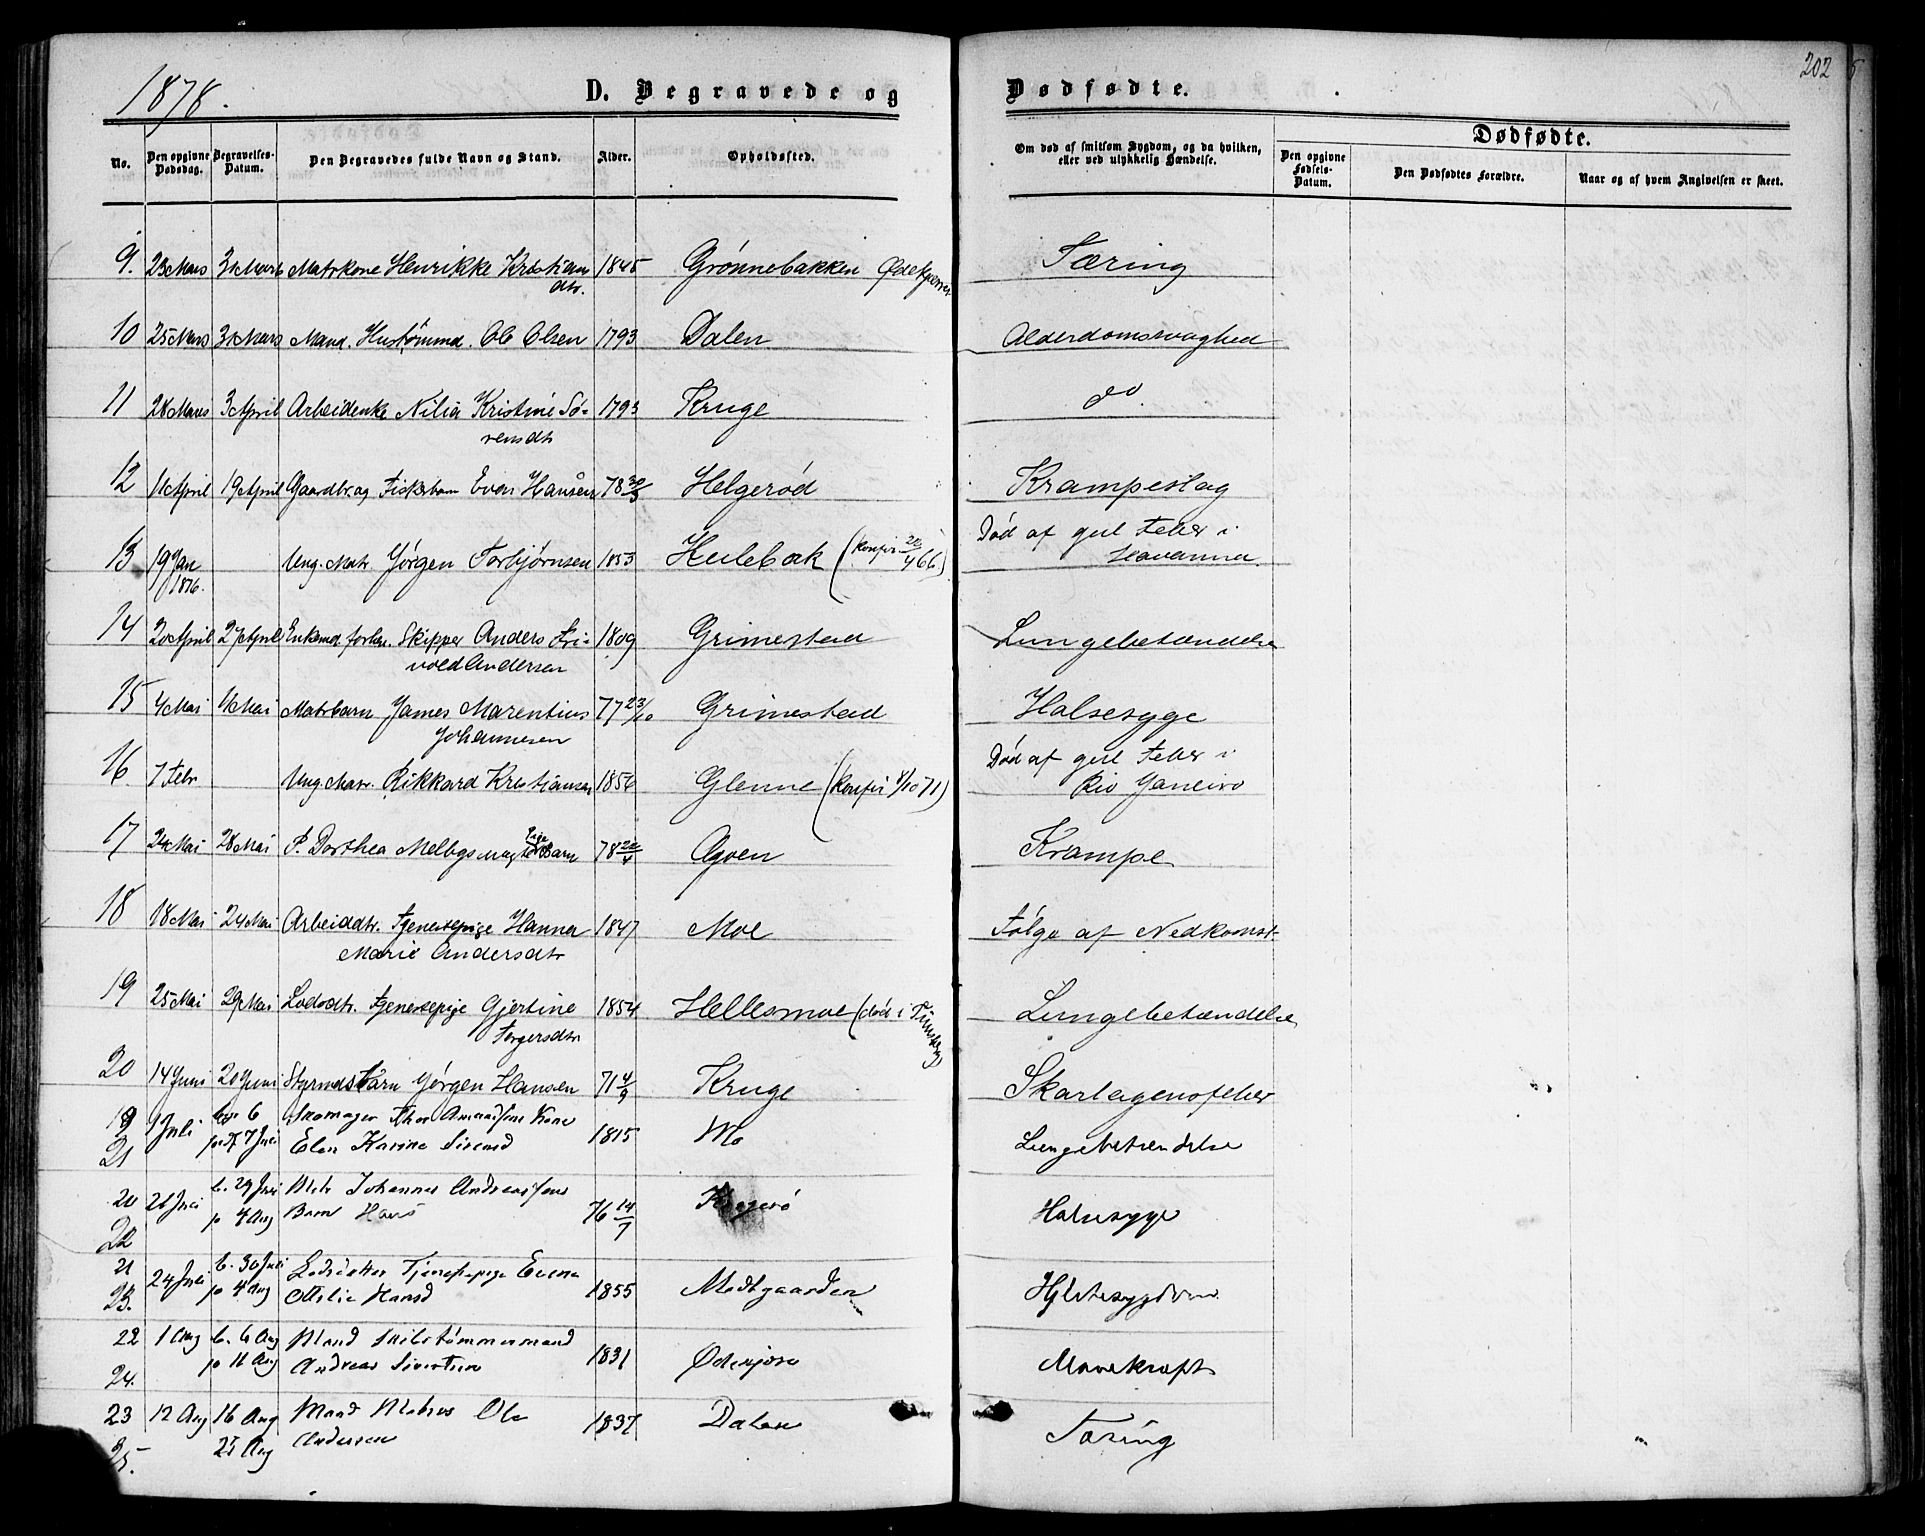 1878.
D. Begravede og
Dødfødte.
202
No.
Den opgivne Dødsdag.
Begravelses-Datum.
Den Begravedes fulde Navn og Stand.
Alder.
Opholdssted.
Om død af smitsom Sygdom, og da hvilken, eller ved ulykkelig Hændelse.
Dødfødte.
Den opgivne Fødsels-Datum.
Den Dødfødtes Forældre.
Naar og af hvem Angivelsen er skeet.
9. 23 Mars 31 Mars Matrkone Henrikke Kristian 1845 Grønnebakken Tæring
dtr.
10 25 Mars 31 Mars Mand. Hustømmd. Ole Olsen 1793 Dalen Alderdomssvaghed
11 28 Mars 3 April Arbeidenke Nilia Kristine Sø- 1793 Kruge do.
rensdtr
12 11 April 19 April Gaardbr. og Fiskerbarn Even Hansen 78 30/3 Helgerød Krampeslag
13 19 Jan Ung. Matr. Jørgen Torbjørnsen 1853 (konfir 66) Død af gul Feber i
1876. Havanna
14 20 April 27 April Enkemd. forhen. Skipper Anders Tri- 1809 Grimestad Lungebetændelse
vold Andersen
15 4 Mai 11 Mai Matrbarn James Marentius 77 23/10 Grimestad Halsesyge
Johannesen
16. 7 Febr Ung. Matr. Rikkard Kristiansen 1856 Glenne (konfir 8/10 71) Død af gul Feber i
Rio Janeiro
17 24 Mai 28 Mai P. Dorthea Melbgs uægte Barn 78 Agven Krampe
18 18 Mai 24 Mai Arbeiddtr. Tjenestepige Hanna 1847 Moe Følge af Nedkomst
Marie Andersdtr
19 25 Mai 29 Mai Lodsdtr. Tjenestepige Gjertine 1854 Hellesmoe (død i Tunsberg Lungebetændelse
Torgersdtr
20 14 Juni 20 Juni Styrmdsbarn Jørgen Hansen 71 4/9 Kruge Skarlagensfeber
19 1 Juli 6 Skomager Kone 1815 Mo Lungebetændelse
21 7 Juli Elen Karine
20 21 Juli b. 29 Juli Matr Johannes Andreassens 76 14/7 Halsesyge
22 p 4 Aug Barn Hans
21 24 Juli b. 30 Juli Tjenestepige 1855 Hjertesygdom
23. p 4 Aug Hansd
22 1 Aug b. 6 Aug Mand Skibstømmermand 1831 Mavekræft
24. p 11 Aug Andreas Sivertsen
23 12 Aug 16 Aug Mand Matros Ole 1837 Dalen Tæring
25. 25 Aug Andersen